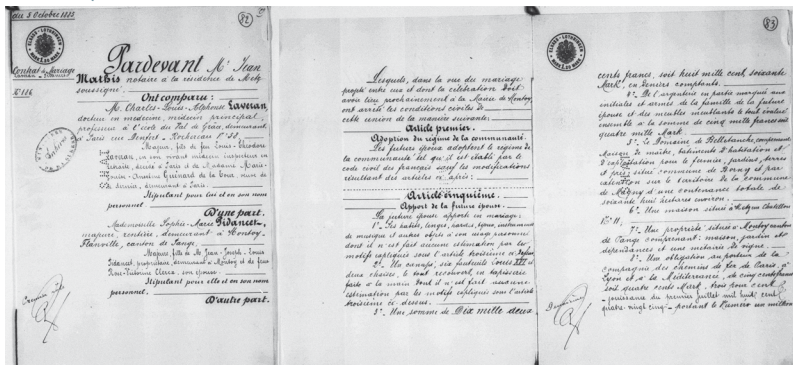 du 8 Octobre 1885
82
Contrat de Mariage
N° 116
Pardevant Me Jean
Marbis notaire à la résidence de Metz
soussigné.
Ont comparu :
M. Charles-Louis-Alphonse Laveran,
docteur en médecine, médecin principal,
professeur à l'école du Val de Grâce, demeurant
à Paris rue Denfert-Rochereau N° 38.
Majeur, fils de feu Louis-Théodore
Laveran, en son vivant médecin inspecteur en
retraite, décédé à Paris et de Madame Marie-
Louise-Anselme Guénard de la Tour, veuve de
ce dernier, demeurant à Paris.
Stipulant pour lui et en son nom
personnel
D'une part.
Mademoiselle Sophie-Marie Pidancet,
majeure, rentière, demeurant à Montoy
Flanville, canton de Pange.
Majeure, fille de Mr Jean-Joseph-Louis
Pidancet, propriétaire, demeurant à Montoy et de feue
Rose-Victorine Clercx, son épouse.
Stipulant pour elle et en son nom
personnel.
D'autre part.
Lesquels, dans la vue du mariage
projeté entre eux et dont la célébration doit
avoir lieu prochainement à la Mairie de Montoy
ont arrêté les conditions civiles de
cette union de la manière suivante :
Article premier.
Adoption du régime de la communauté.
Les futurs époux adoptent le régime de
la communauté tel qu'il est établi par le
code civil des français sauf les modifications
résultant des articles ci-après :
Article cinquième.
Apport de la future épouse.
La future épouse apporte en mariage :
1° Ses habits, linges, hardes, bijoux, instruments
de musique et autres objets à son usage personnel
dont il n'est fait aucune estimation par les
motifs expliqués sous l'article troisième ci-dessus.
2° Un canapé, six fauteuils Louis XVI
deux chaises, le tout recouvert en tapisserie
faite à la main dont il n'est fait aucune
estimation par les motifs expliqués sous l'article
troisième ci-dessus.
3° Une somme de Dix mille deux
83
cents francs, soit huit mille cent soixante
Mark, en deniers comptants.
4° De l'argenterie en partie marquée aux
initiales et armes de la famille de la future
épouse et des meubles meublants le tout évalué
ensemble à la somme de cinq mille francs soit
quatre mille Mark.
5° Le Domaine de Belletanche, comprenant
Maison de maître, bâtiments d'habitation et
d'exploitation pour le fermier, jardins, terres
et prés situé commune de Borny et par
extension sur le territoire de la commune
de Magny d'une contenance totale de
soixante huit hectares environ.
6° Une maison située à Metz rue Chatillon
N° 11.
7° Une propriété située à Montoy canton
de Pange comprenant : maison, jardin et
dépendances et une métairie de vigne.
8° Une obligation au porteur de la
compagnie des chemins de fer de Paris, à
Lyon et à la Méditerranée, de cinq cents francs
soit quatre cents Mark, trois pour cent
jouissance du premier Juillet mil huit cent
quatre-vingt cinq portant le numéro un million